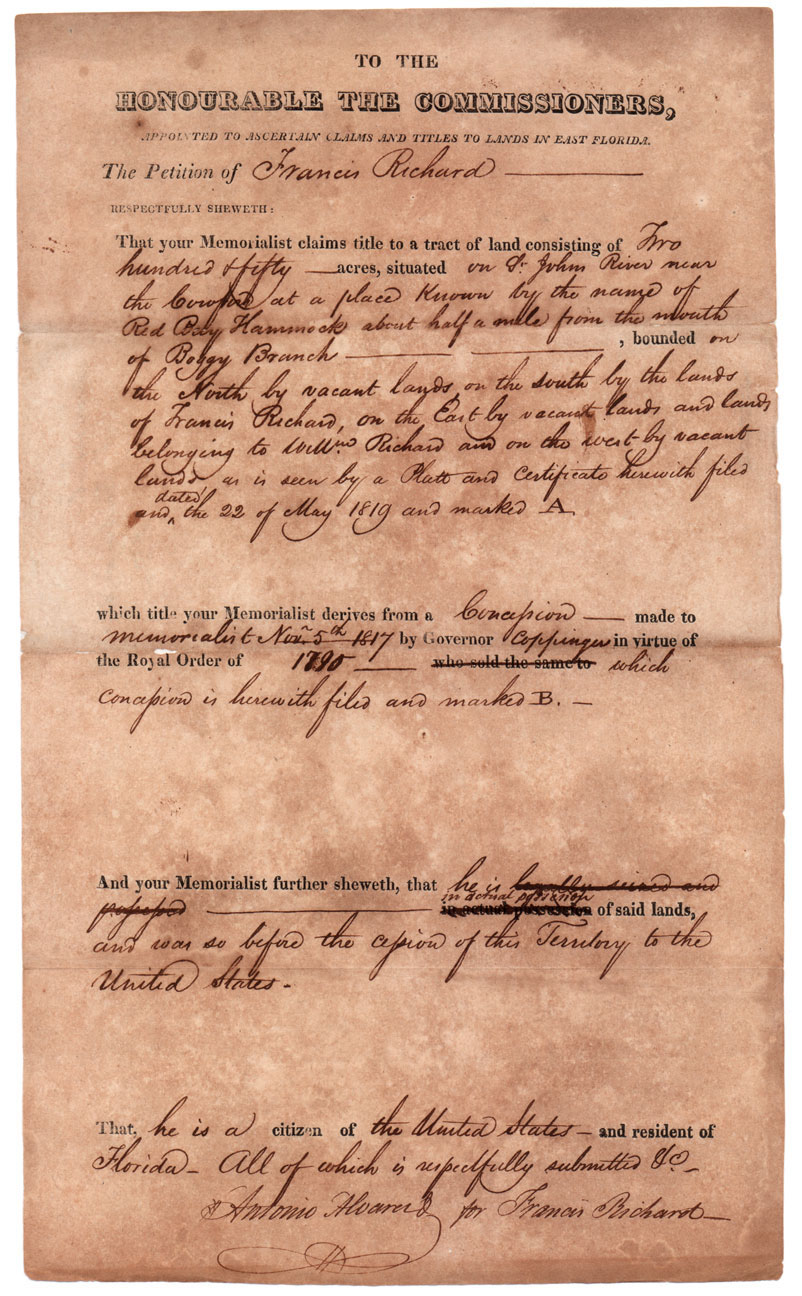 TO THE
HONOURABLE THE COMMISSIONERS,
APPOINTED TO ASCERTAIN CLAIMS AND TITLES TO LANDS IN EAST FLORIDA.
The Petition of Francis Richard
RESPECTFULLY SHEWETH:
That your Memorialist claims title to a tract of land consisting of Two
hundred & fifty acres, situated on St Johns River near
the Cowford at a place Known by the name of
Red Bay Hammock about half a mile from the mouth
of Boggy Branch , bounded on
the North by vacant lands, on the south by the lands
of Francis Richard, on the East by vacant lands and lands
belonging to Richard and on the west by vacant
lands, as is seen by a Platt and Certificate herewith filed
dated
and ‸ the 22 of May 1819 and marked A
which title your Memorialist derives from a Concession — made to
memorialist Novr. 5th 1817 by Governor Coppinger in virtue of
the Royal Order of 1790 — who sold the same to which
Concession is herewith filed and marked B. —
And your Memorialist further sheweth, that he is legally seized and
in actual possession
possessed in actual possession of said lands,
and was so before the cession of this Territory to the
United States.
That, he is a citizen of the United States — and resident of
Florida — All of which is respectfully submitted &c —
Antonio Alvarez for Francis Richard —